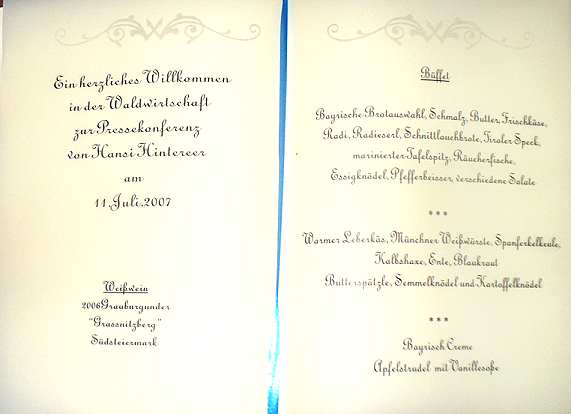 Ein herzliches Willkommen
in der Waldwirtschaft
zur Pressekonferenz
von Hansi Hinterer
am
11.Juli.2007
Weißwein
2006Grauburgunder
"Grassnitzberg"
Südsteiermark
Büffet
Bayrische Brotauswahl, Schmalz, Butter, Frischkäse,
Radi, Radieserl, Schnittlauchbrote, Tiroler Speck,
marinierter Tafelspitz, Räucherfische,
Essigknödel, Pfefferbeisser, verschiedene Salate
***
Warmer Leberkäs, Münchner Weißwürste, Spanferkelkeule,
Kalbshaxe, Ente, Blaukraut
Butterspätzle, Semmelknödel und Kartoffelknödel
***
Bayrisch Creme
Apfelstrudel mit Vanillesoße